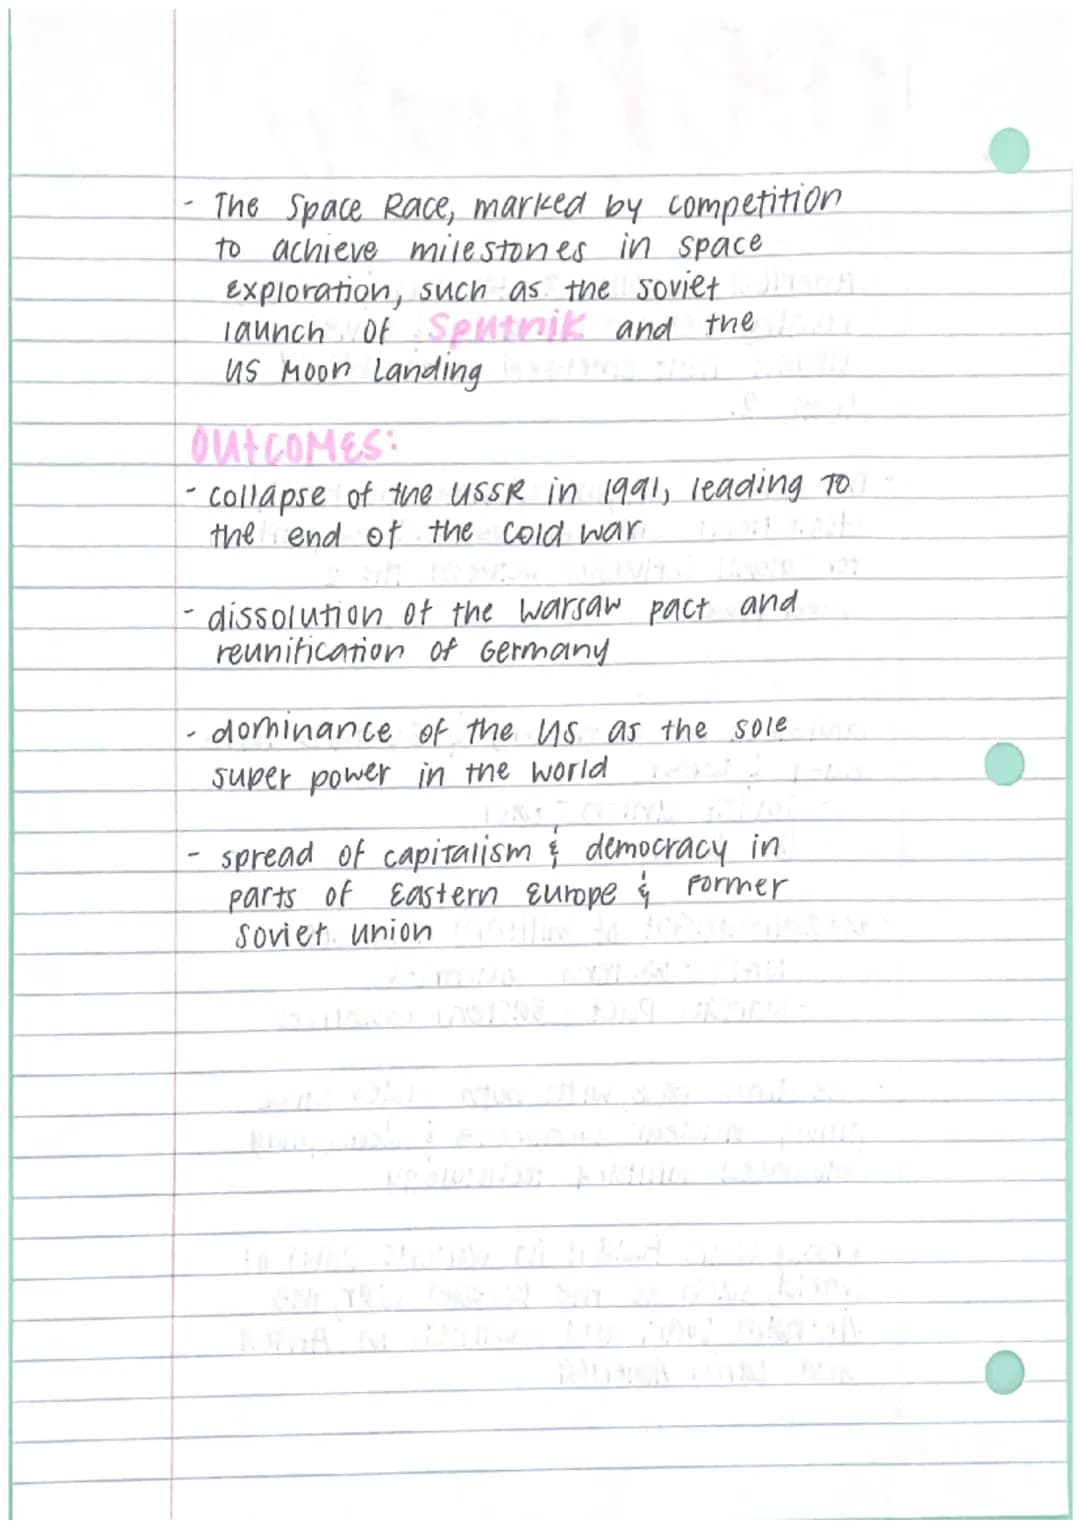 - The Space Race, marked by competition
to achieve milestones in space
exploration, such as the soviet
launch of Sputnik and the
US Moon Landing
OUTCOMES:
- collapse of the USSR in 1991, leading to
the end of the cold war
- dissolution of the warsaw pact and
reunification of Germany
- dominance of the US as the sole
super power in the world
- spread of capitalism & democracy in
parts of Eastern Europe & Former
Soviet union